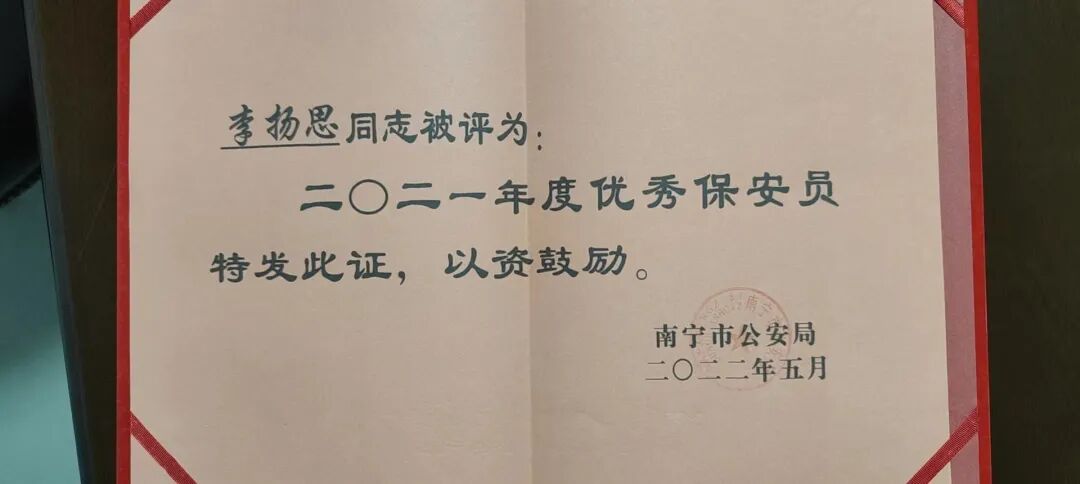 李扬思同志被评为：
二〇二一年度优秀保安员
特发此证，以资鼓励。
南宁市公安局
二〇二二年五月